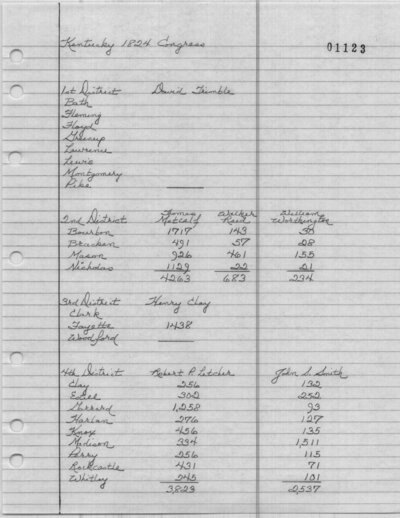 Kentucky 1824 Congress
01123
1st District David Trimble
Bath
Fleming
Floyd
Greenup
Lawrence
Lewis
Montgomery
Pike
Thomas Walker William
2nd District Metcalf Reid Worthington
Bourbon 1717 143 30
Bracken 491 57 28
Mason 926 461 155
Nicholas 1129 22 21
4263 683 234
3rd District Henry Clay
Clark
Fayette 1438
Woodford
4th District Robert P. Letcher John S. Smith
Clay 256 132
Estel 302 252
Garrard 1,258 93
Harlan 276 127
Knox 456 135
Madison 334 1,511
Perry 256 115
Rockcastle 431 71
Whitley 245 101
3823 2,537